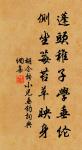 蓬頭稚子學垂綸
側坐莓苔草映身
胡令能小兒垂釣詞典
偶集